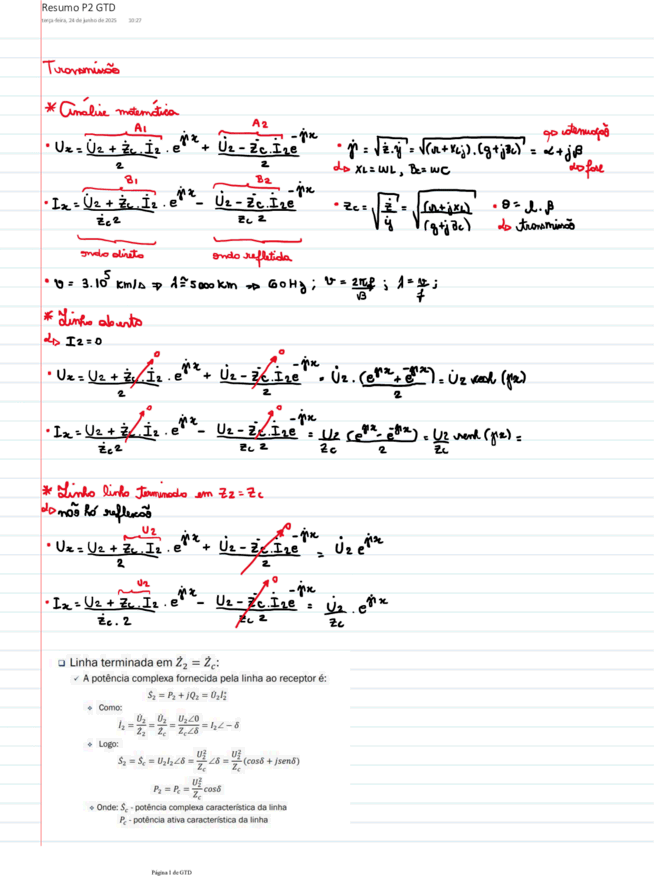 Resumo P2 GTD
terça-feira, 24 de junho de 2025 10:27
Transmissão
* Análise matemática
A1 A2
• Ux = (U̇2 + Żc.İ2)/2 . e^γ̇x + (U̇2 - Żc.İ2)/2 e^-γ̇x
• γ̇ = √(ż.ẏ) = √((r+XLj).(g+jBc)) = α + jβ
↳ XL = WL, Bc = WC
↳ fase
B1 B2
• Ix = (U̇2 + Żc.İ2)/(Żc 2) . e^γ̇x - (U̇2 - Żc.İ2)/(Zc 2) e^-γ̇x
• Zc = √(ż/ẏ) = √((r+jXL)/(g+jBc))
• θ = l.β
↳ transmissão
onda direta
onda refletida
• v = 3.10^5 Km/s ⇒ λ ≅ 5000 Km ⇒ 60 Hz ; v = 2πf/β ; λ = v/f ;
* Linha aberta
↳ I2 = 0
• Ux = (U2 + Żc.İ2)/2 . e^γ̇x + (U̇2 - Żc.İ2)/2 e^-γ̇x = U̇2 . (e^γ̇x + e^-γ̇x)/2 = U̇2 cosh (γ̇x)
• Ix = (U2 + Żc.İ2)/(Żc 2) . e^γ̇x - (U2 - Żc.İ2)/(Zc 2) e^-γ̇x = U2/Zc (e^γ̇x - e^-γ̇x)/2 = U2/Zc senh (γ̇x) =
* Linha linha Terminada em Z2 = Zc
↳ não há reflexão
U2
• Ux = (U2 + Żc.I2)/2 . e^γ̇x + (U̇2 - Żc.İ2)/2 e^-γ̇x = U̇2 e^γ̇x
U2
• Ix = (U2 + Żc.I2)/(Żc . 2) . e^γ̇x - (U2 - Żc.İ2)/(Zc 2) e^-γ̇x = U̇2/Zc . e^γ̇x
❑ Linha terminada em Ż2 = Żc:
✓ A potência complexa fornecida pela linha ao receptor é:
Ṡ2 = P2 + jQ2 = U̇2İ2*
❖ Como:
İ2 = U̇2/Ż2 = U̇2/Żc = U2∠0/Zc∠δ = I2∠ − δ
❖ Logo:
Ṡ2 = Ṡc = U2I2∠δ = U2²/Zc ∠δ = U2²/Zc (cosδ + jsenδ)
P2 = Pc = U2²/Zc cosδ
❖ Onde: Ṡc - potência complexa característica da linha
Pc - potência ativa característica da linha
Página 1 de GTD